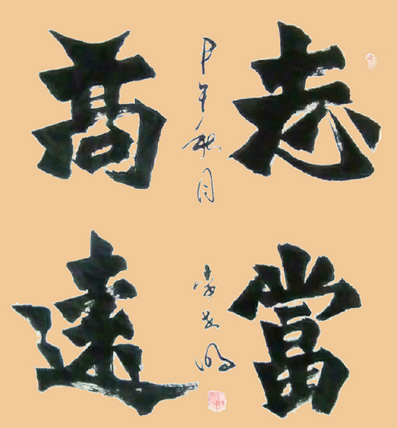 志當
高遠
甲午秋月